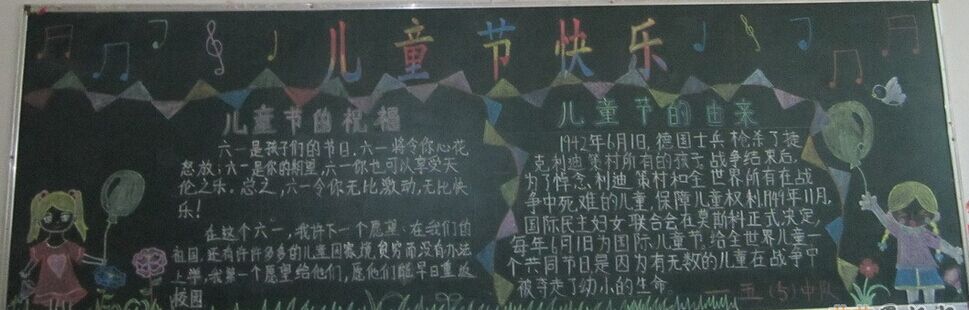 儿童节快乐
儿童节的祝福
六一是孩子们的节日.六一将令你心花
怒放;六一是你的期望,六一你也可以享受天
伦之乐。总之,六一令你无比激动,无比快
乐!
在这个六一,我许下一个愿望、在我们的
祖国,还有许许多多的儿童因家境贫穷而没有办法
上学,我第一个愿望给他们,愿他们能早日重返
校园
儿童节的由来
1942年6月1日,德国士兵枪杀了捷
克利迪策村所有的孩子战争结束后,
为了悼念利迪策村和全世界所有在战
争中死难的儿童,保障儿童权利1949年11月,
国际民主妇女联合会在莫斯科正式决定,
每年6月1日为国际儿童节,给全世界儿童一
个共同节日,是因为有无数的儿童在战争中
被夺走了幼小的生命
一五(5)中队